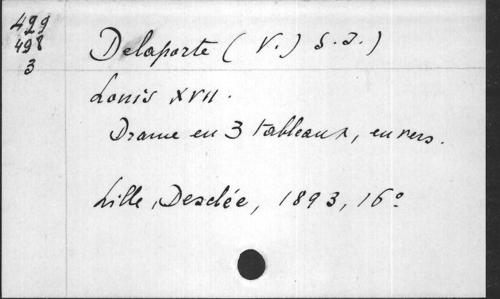 429
498
3
Delaporte (V.) S.J.)
Louis XVII.
Drame en 3 tableaux, en vers.
Lille, Desclée, 1893, 16º